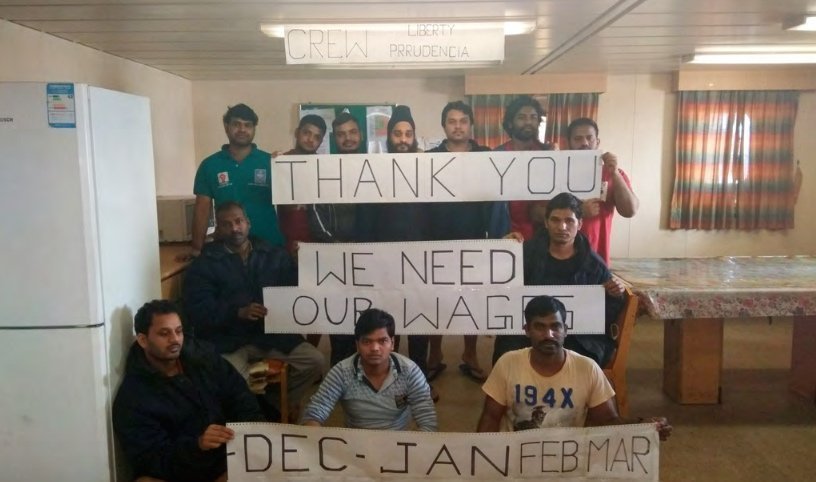 CREW LIBERTY
PRRUDENCIA
THANK YOU
WE NEED
OUR WAGES
-DEC-JAN FEB MAR
194X